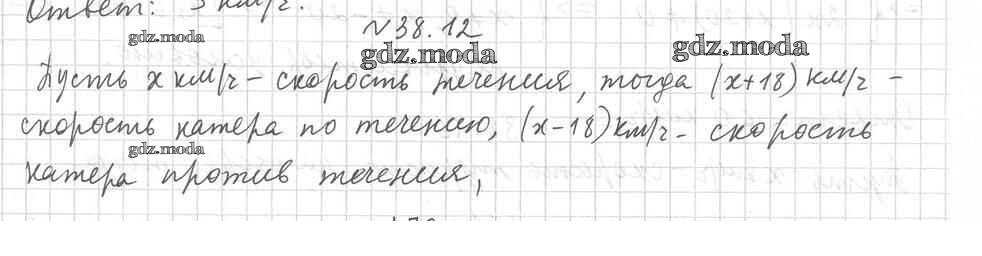 Ответ: 3 км/ч.
№38.12
gdz.moda
gdz.moda
gdz.moda
Пусть x км/ч - скорость течения, тогда (x+18) км/ч -
скорость катера по течению, (x-18) км/ч - скорость
gdz.moda
катера против течения,